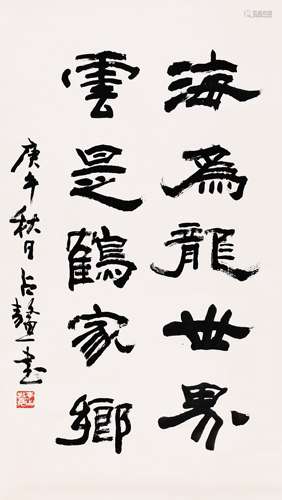 海為龍世界
雲是鶴家鄉
庚午秋日占鰲書